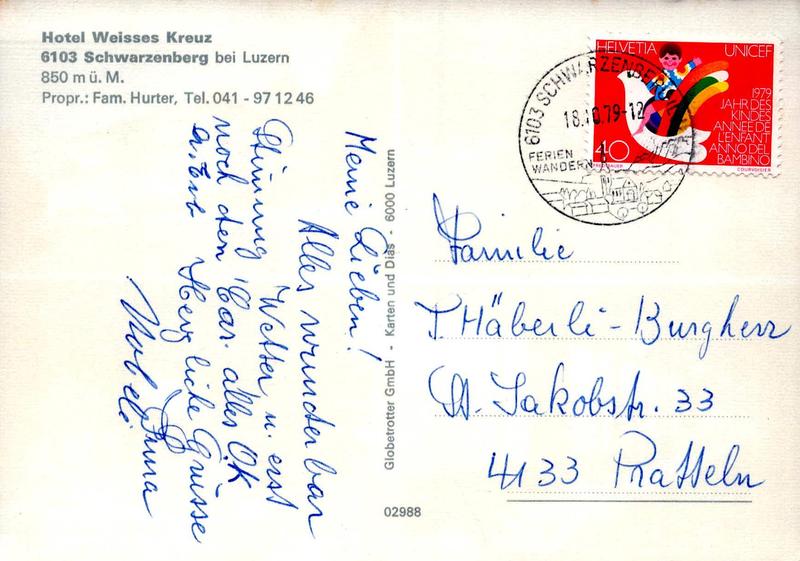 Hotel Weisses Kreuz
6103 Schwarzenberg bei Luzern
850 m ü. M.
Propr.: Fam. Hurter, Tel. 041 - 97 12 46
Meine Lieben!
Alles wunderbar
Wetter u. erst
Stimmung
noch den Car. alles OK
Herzliche Grüsse
Globetrotter GmbH - Karten und Dias - 6000 Luzern
02988
HELVETIA UNICEF
1979
JAHR DES
KINDES
ANNEE DE
L'ENFANT
ANNO DEL
BAMBINO
40
COURVOISIER
6103 SCHWARZENBERG
18.10.79-12
FERIEN
WANDERN
Familie
T. Häberli-Burgherr
St. Jakobstr. 33
4133 Pratteln